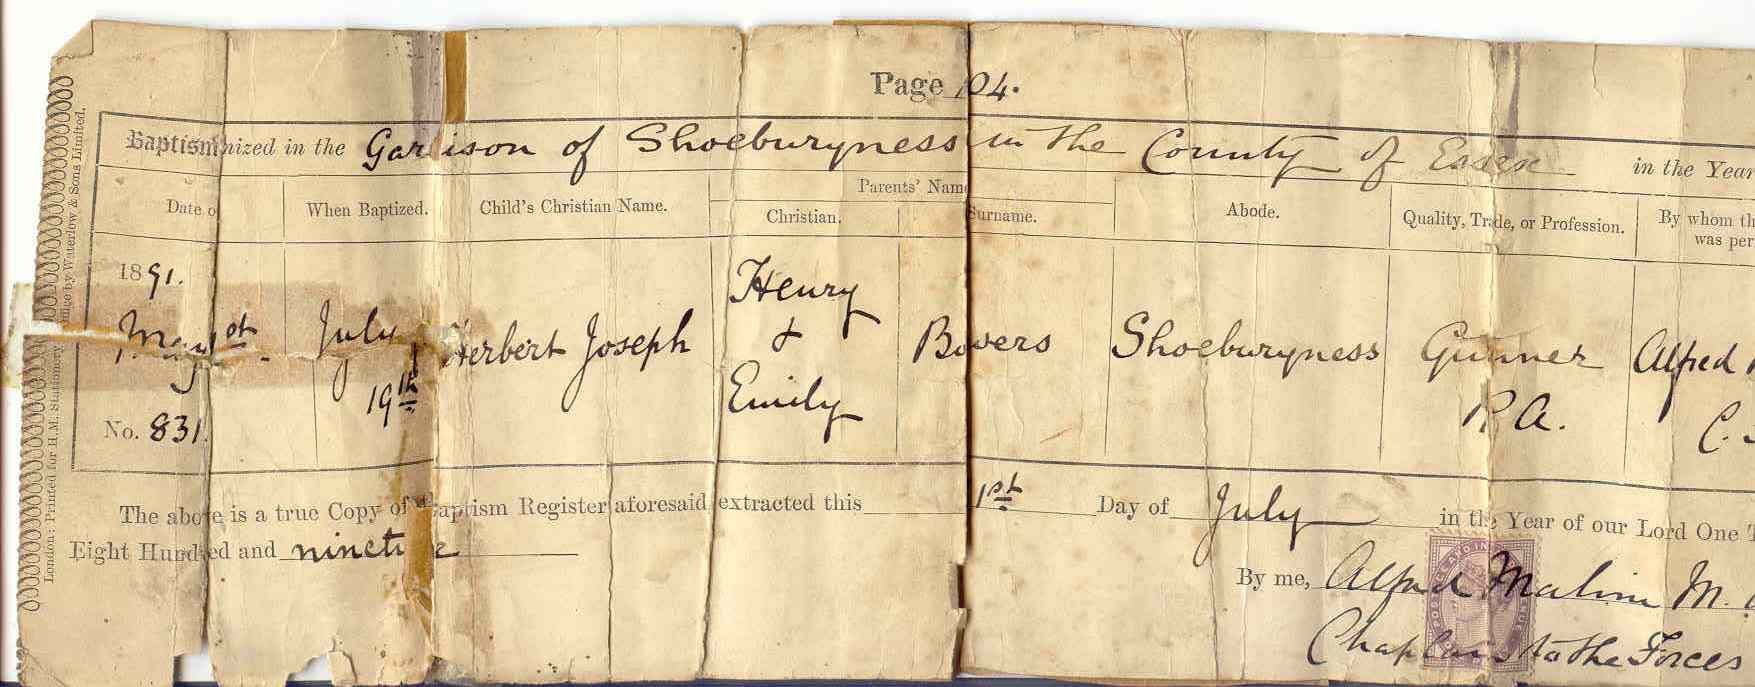 Page 104.
Baptism nized in the Garrison of Shoeburyness in the County of Essex in the Year
Parents' Name
Date o When Baptized. Child's Christian Name. Christian. Surname. Abode. Quality, Trade, or Profession. By whom th
was per
1891.
May 1st July 19th Herbert Joseph Henry & Emily Bowers Shoeburyness Gunner R.A. Alfred
C.
No. 831.
The above is a true Copy of Baptism Register aforesaid extracted this 1st Day of July in the Year of our Lord One
Eight Hundred and ninety
By me, Alfred Malim M.
Chaplain to the Forces
London: Printed for H.M. Stationery by Waterlow & Sons Limited.